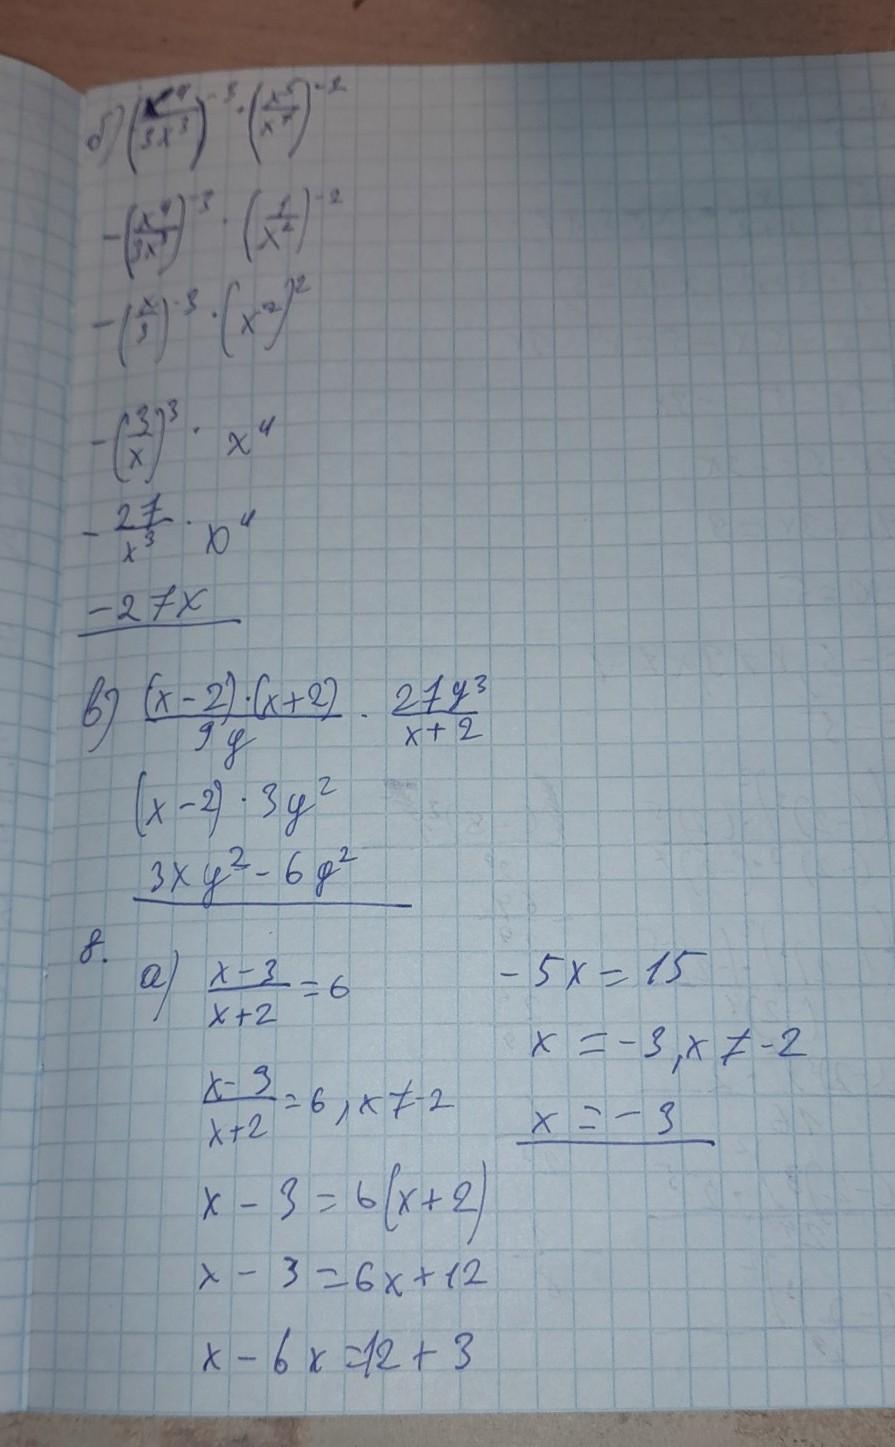 б) (x⁴/3x³)⁻³ · (x⁵/x⁷)⁻²
-(x⁴/3x³)⁻³ · (1/x²)⁻²
-(x/3)⁻³ · (x²)²
-(3/x)³ · x⁴
-27/x³ · x⁴
-27x
в) (x-2)·(x+2)/9y · 27y³/x+2
(x-2) · 3y²
3xy² - 6y²
8.
а) x-3/x+2 = 6
x-3/x+2 = 6, x ≠ -2
x - 3 = 6(x+2)
x - 3 = 6x + 12
x - 6x = 12 + 3
-5x = 15
x = -3, x ≠ -2
x = -3